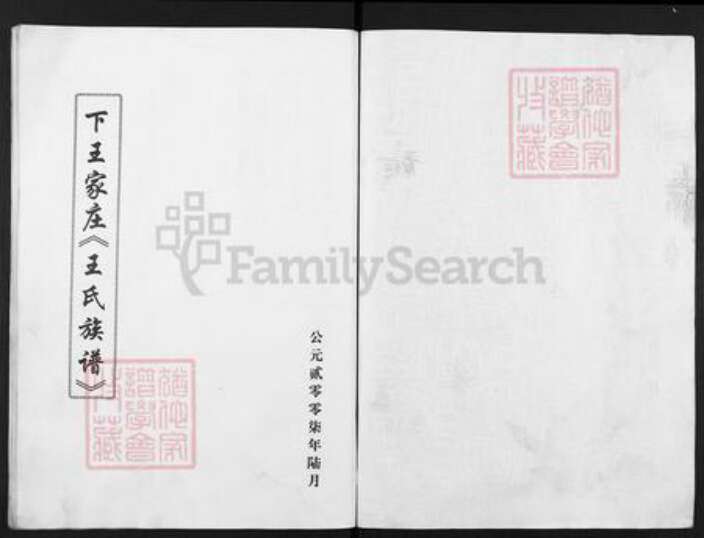 下王家庄《王氏族谱》
公元贰零零柒年陆月
FamilySearch
猶他家
譜學會
收藏
猶他家
譜學會
收藏